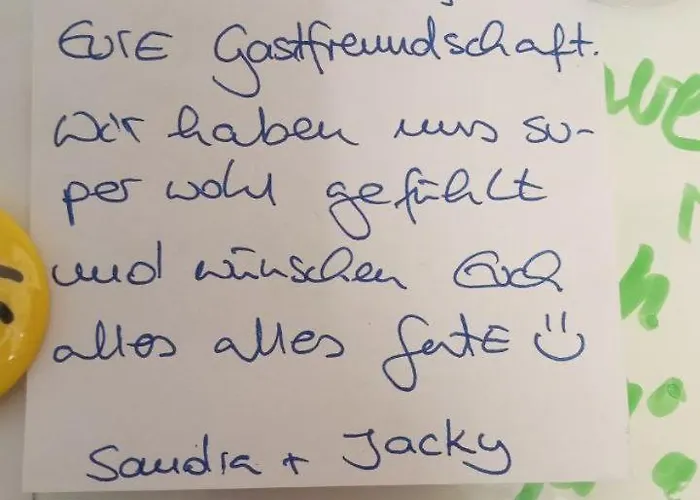 Eure Gastfreundschaft.
Wir haben uns su-
per wohl gefühlt
und wünschen Euch
alles alles Gute
Sandra + Jacky
we